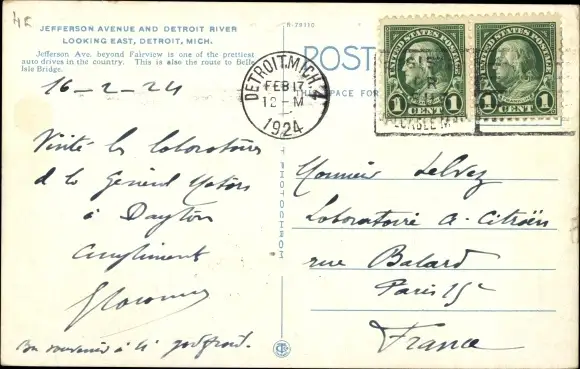 JEFFERSON AVENUE AND DETROIT RIVER
LOOKING EAST, DETROIT, MICH.
Jefferson Ave. beyond Fairview is one of the prettiest
auto drives in the country. This is also the route to Belle
Isle Bridge.
R-79310
POST
THIS SPACE FOR
DETROIT, MICH. 4
FEB 17
12-M
1924
UNITED STATES POSTAGE
FRANKLIN
1 CENT 1
UNITED STATES POSTAGE
FRANKLIN
1 CENT 1
16-2-24
Visité les laboratoires
de la General Motors
à Dayton
Compliments
Bon souvenir à
PHOTOCHROM
Monsieur
Laboratoire A. Citroën
rue Balard
Paris 15e
France